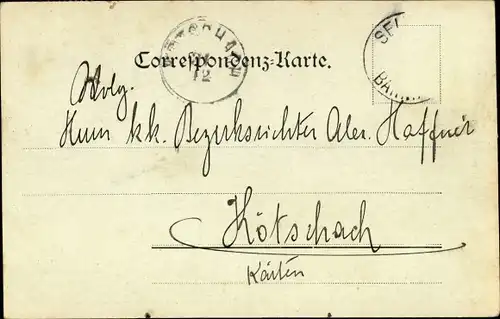 Correspondenz-Karte.
Wolg.
Herrn kk. Bezirksrichter Alex. Haffner
Kötschach
Kärten